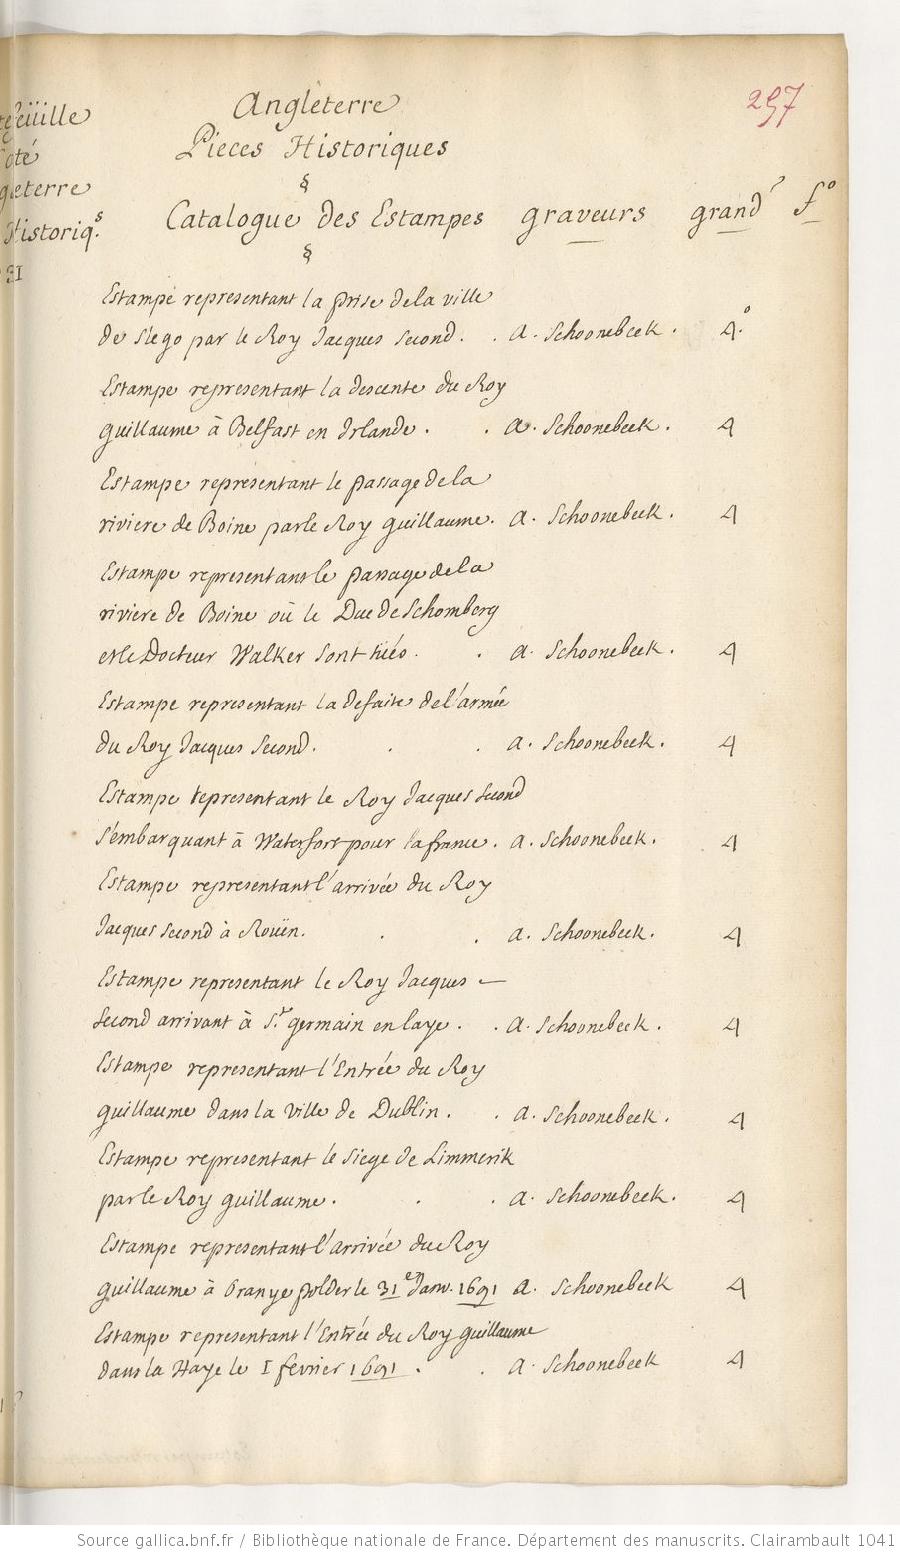 Angleterre
297
Pieces Historiques
§
Catalogue des Estampes graveurs grandr fo
§
euille
oté
gleterre
Historiqs.
31
Estampe representant la prise dela ville
de Slego par le Roy Jacques Second. . A. Schoonebeek. 4.o
Estampe representant la descente du Roy
guillaume à Belfast en Irlande. . A. Schoonebeek. 4
Estampe representant le passage dela
riviere de Boine parle Roy guillaume. A. Schoonebeek. 4
Estampe representant le passage dela
riviere de Boine où le Duc de Schomberg
et le Docteur Walker sont tüés. . A. Schoonebeek. 4
Estampe representant la defaite del'armée
du Roy Jacques Second. . . A. Schoonebeek. 4
Estampe representant le Roy Jacques Second
s'embarquant à Waterfort pour la france. A. Schoonebeek. 4
Estampe representant l'arrivée du Roy
Jacques Second à Roüen. . . A. Schoonebeek. 4
Estampe representant le Roy Jacques –
Second arrivant à St. germain en laye. . A. Schoonebeek. 4
Estampe representant l'Entrée du Roy
guillaume dans la ville de Dublin. . A. Schoonebeek. 4
Estampe representant le siege de Limmerik
parle Roy guillaume. . . A. Schoonebeek. 4
Estampe representant l'arrivée du Roy
guillaume à Oranye polder le 31en Janv. 1691 A. Schoonebeek 4
Estampe representant l'Entrée du Roy guillaume
dans la Haye le I fevrier 1691 . . A. Schoonebeek 4
Source gallica.bnf.fr / Bibliothèque nationale de France. Département des manuscrits. Clairambault 1041